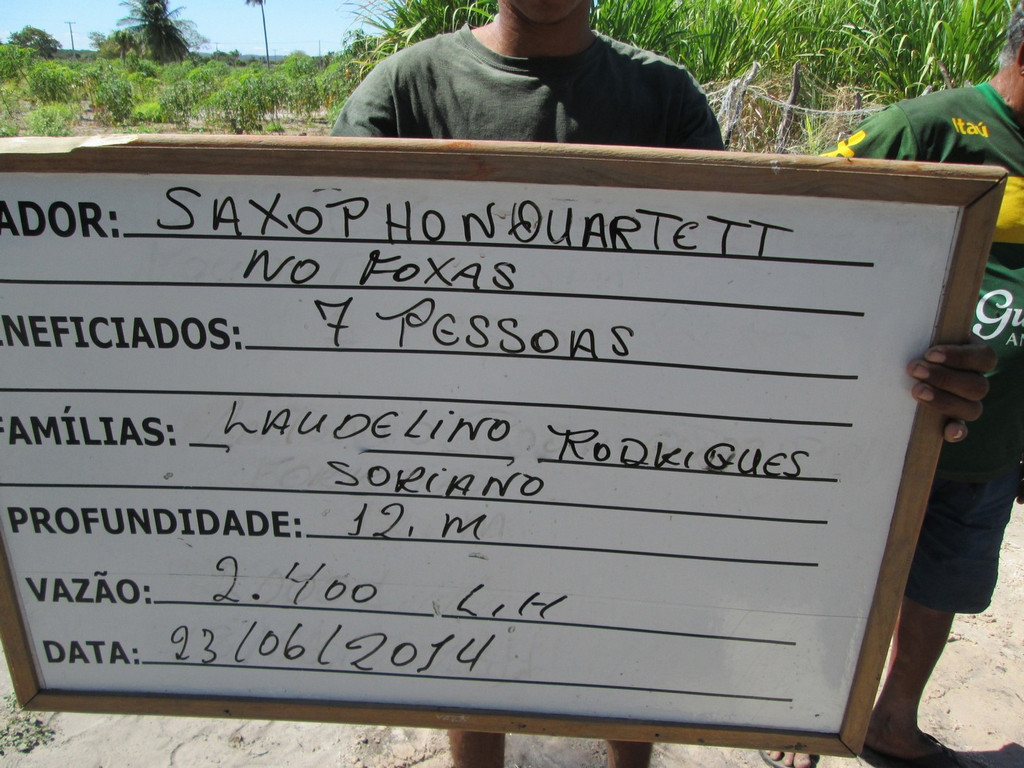 ADOR: SAXOPHONQUARTETT
NO FOXAS
NEFICIADOS: 7 PESSOAS
FAMÍLIAS: LAUDELINO RODRIGUES
SORIANO
PROFUNDIDADE: 12. M
VAZÃO: 2.400 L.H
DATA: 23/06/2014
Itaú
Gu
AN